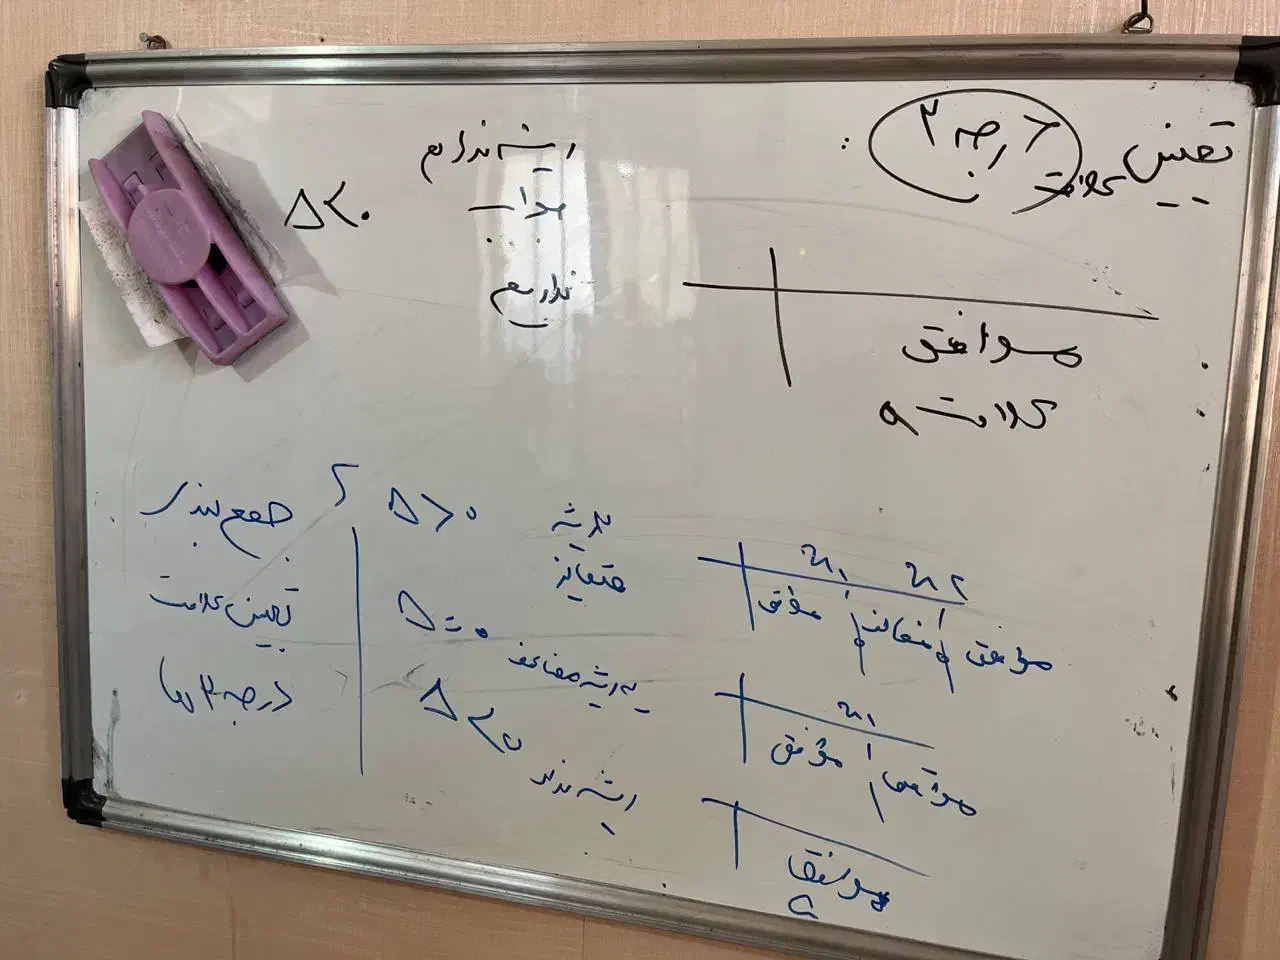 تعیین علامت درجه ۲ :
Δ<۰
ریشه نداریم
جواب
نداریم
موافق
علامت a
جمع بندی
تعیین علامت
درجه ۲ ها
Δ>۰
۲ ریشه
متمایز
x۱ x۲
موافق مخالف موافق
Δ=۰
یه ریشه مضاعف
x۱
موافق موافق
Δ<۰
ریشه ندارد
موافق
a